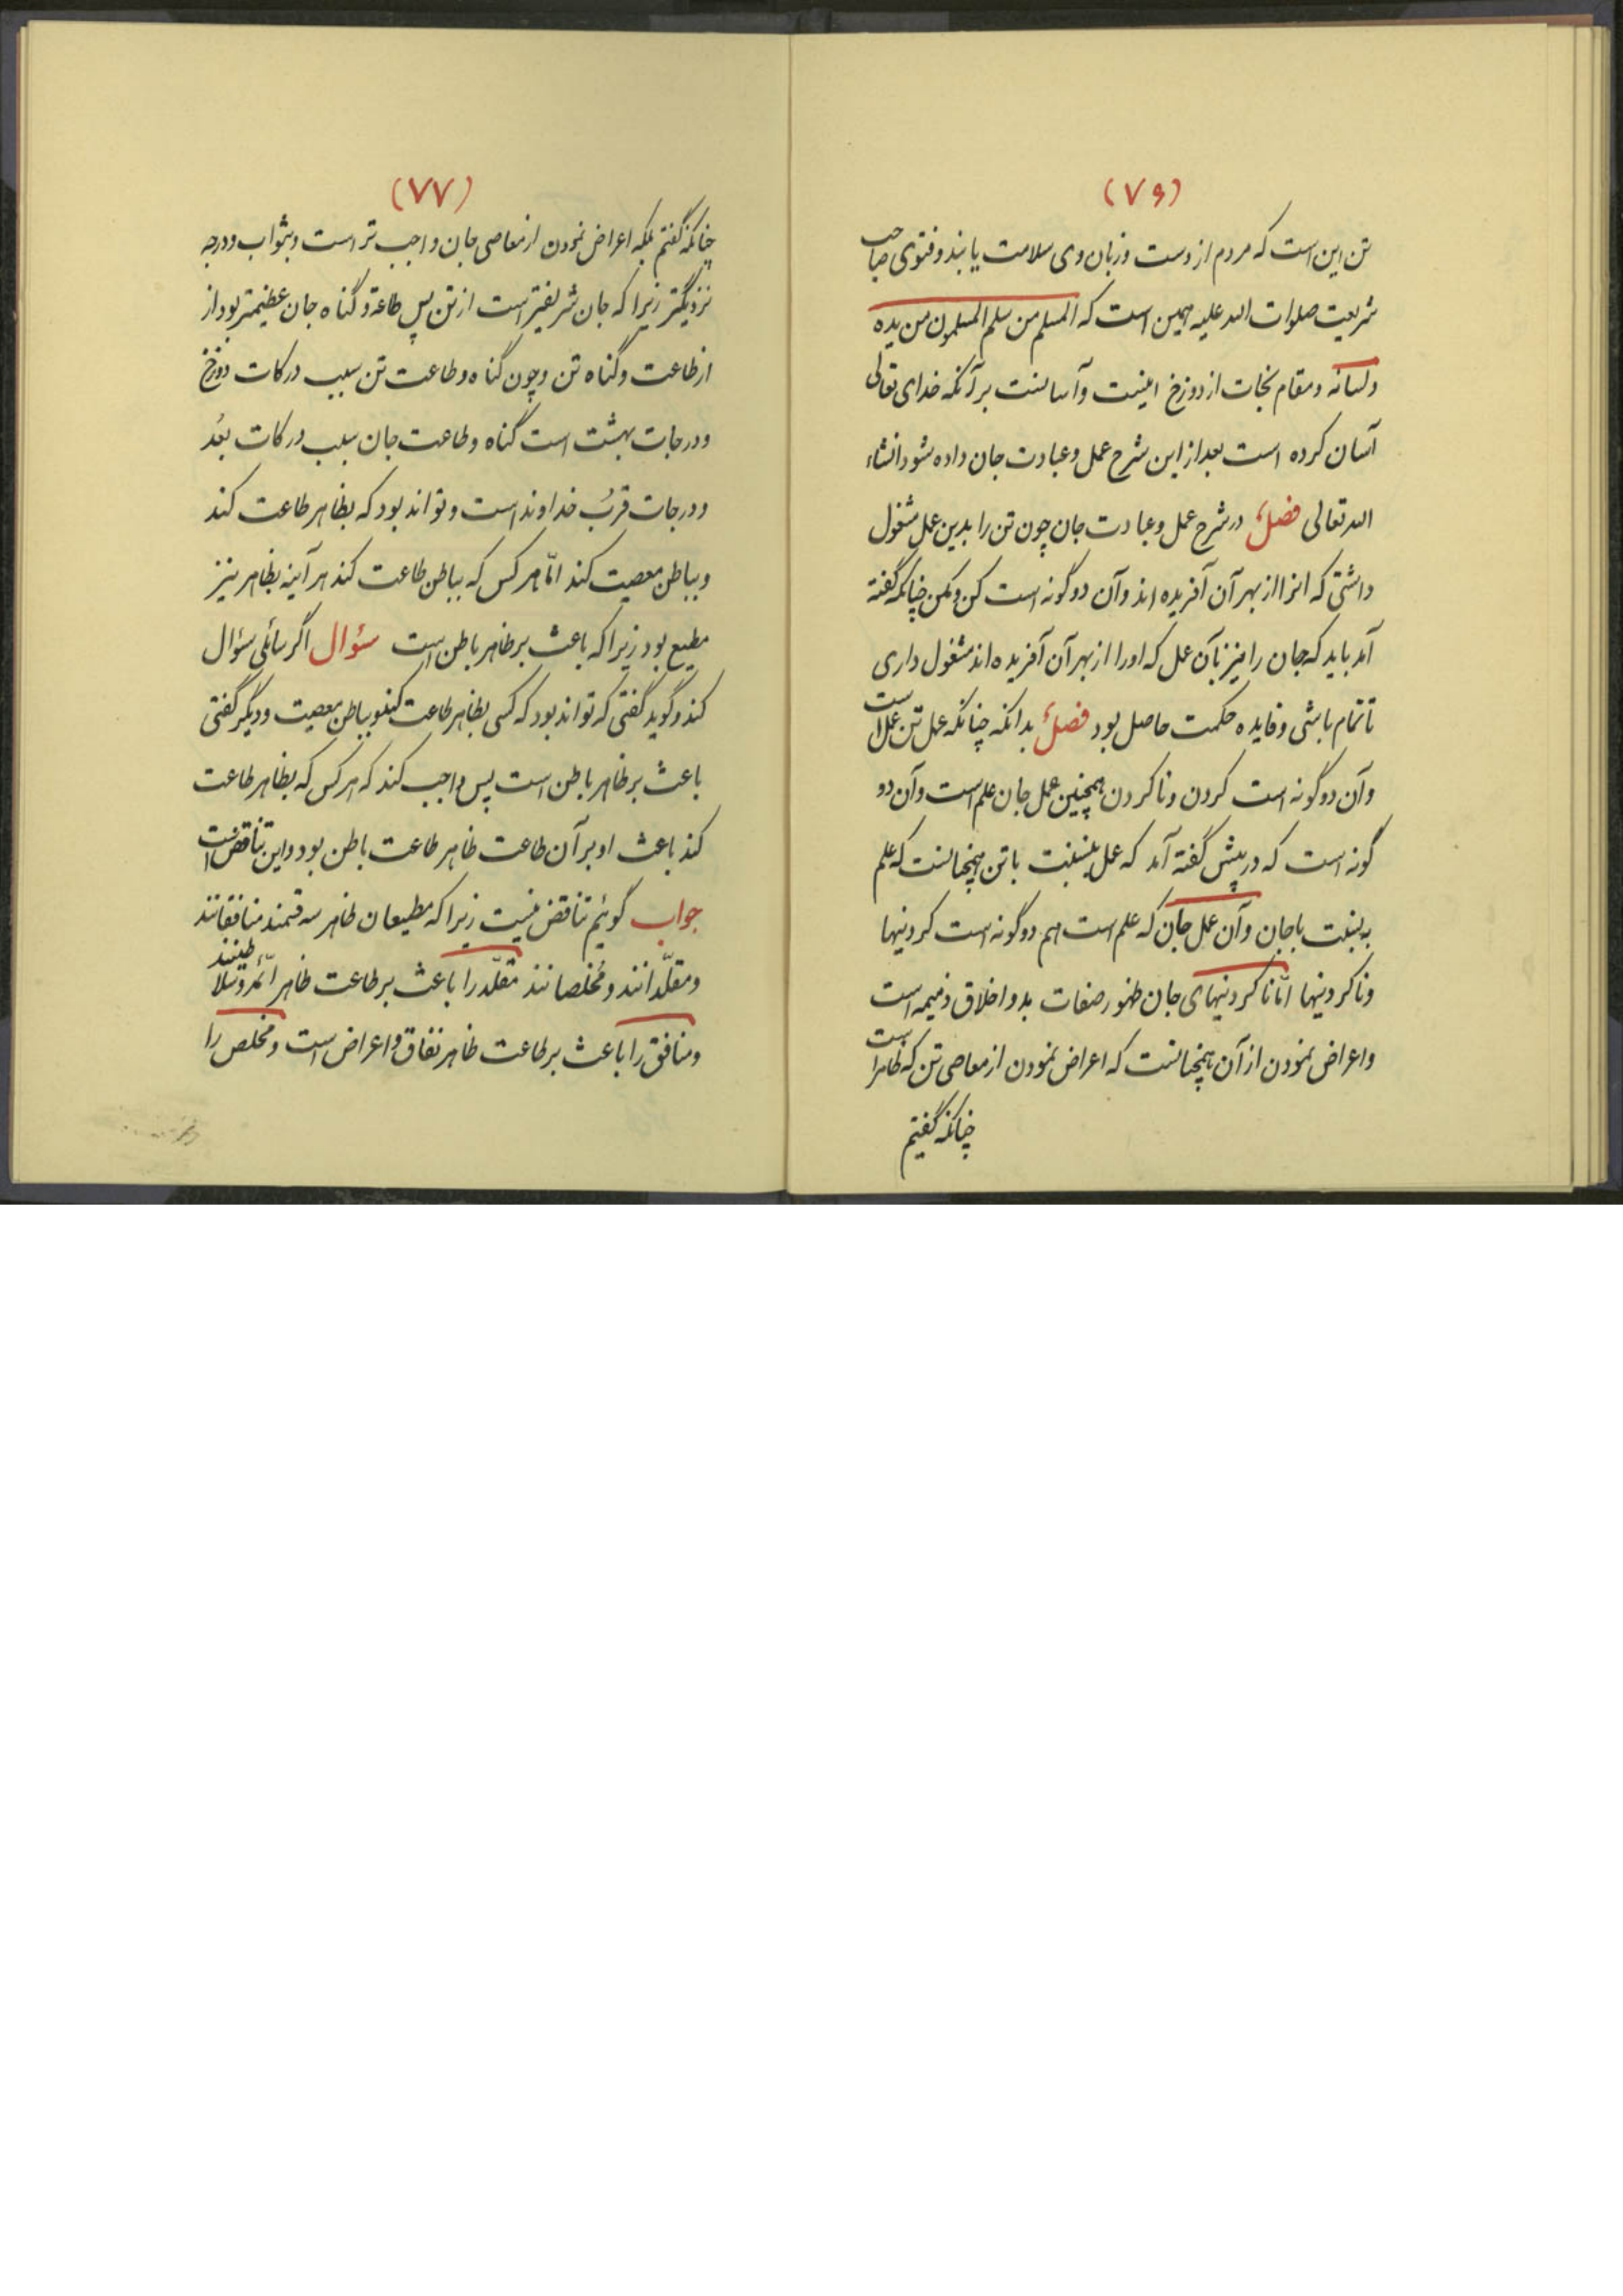 (۷۶)
تن این است که مردم از دست و زبان وی سلامت یابند و فتوی صاحب
شریعت صلوات الله علیه همین است که المسلم من سلم المسلمون من یده
ولسانه و مقام نجات از دوزخ اینست و آسانست بر آنکه خدای تعالی
آسان کرده است بعد از این شرح عمل و عبادت جان داده شود انشاء
الله تعالی فصلٌ در شرح عمل و عبادت جان چون تن را بدین عمل مشغول
داشتی که انرا از بهر آن آفریده اند و آن دو گونه است کن و مکن چنانکه گفته
آمد باید که جان را نیز بآن عمل که او را از بهر آن آفریده اند مشغول داری
تا تمام باشی و فایده حکمت حاصل بود فصلٌ بدانکه چنانکه عمل تن عمل است
و آن دو گونه است کردن و ناکردن همچنین عمل جان علم است و آن دو
گونه است که در پیش گفته آمد که عمل بنسبت با تن همچنانست که علم
به نسبت با جان و آن عمل جان که علم است هم دو گونه است کردنیها
و ناکردنیها امّا ناکردنیهای جان ظهور صفات بد و اخلاق ذمیمه است
و اعراض نمودن از آن همچنانست که اعراض نمودن از معاصی تن که ظاهر است
چنانکه گفتیم
(۷۷)
چنانکه گفتم بلکه اعراض نمودن از معاصی جان واجب تر است و بثواب و درجه
نزدیکتر زیرا که جان شریفتر است از تن پس طاعة و گناه جان عظیمتر بود از
از طاعت و گناه تن و چون گناه و طاعت تن سبب درکات دوزخ
و درجات بهشت است گناه و طاعت جان سبب درکات بُعد
و درجات قُرب خداوند است و تواند بود که بظاهر طاعت کند
و بباطن معصیت کند امّا هر کس که بباطن طاعت کند هر آینه بظاهر نیز
مطیع بود زیرا که باعث بر ظاهر باطن است سؤال اگر سائلی سؤال
کند و گوید گفتی که تواند بود که کسی بظاهر طاعت کند و بباطن معصیت و دیگر گفتی
باعث بر ظاهر باطن است پس واجب کند که هر کس که بظاهر طاعت
کند باعث او بر آن طاعت ظاهر طاعت باطن بود و این تناقض است
جواب گوئیم تناقض نیست زیرا که مطیعان ظاهر سه قسمند منافقانند
و مقلّدانند و مُخلصانند مقلّد را باعث بر طاعت ظاهر اُمرا و سلاطینند
و منافق را باعث بر طاعت ظاهر نفاق و اعراض است و مخلص را